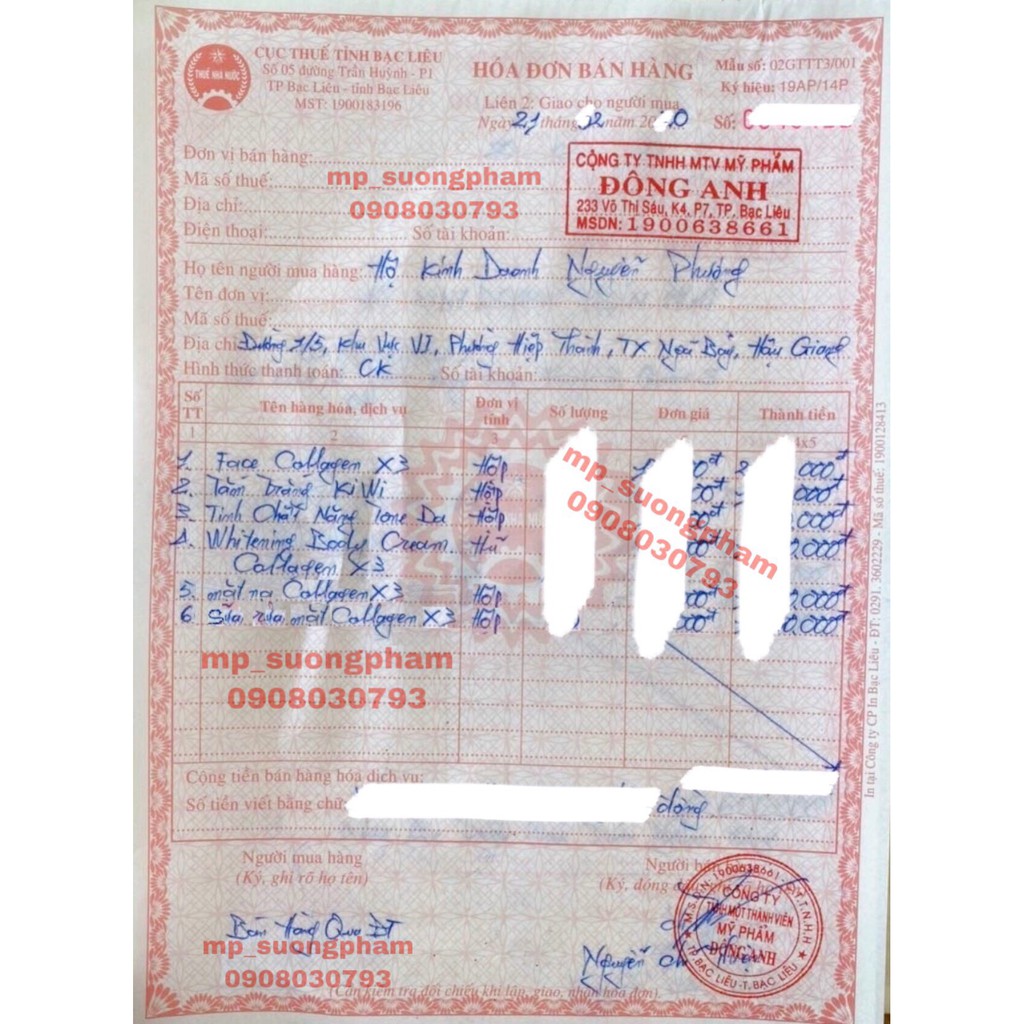 CỤC THUẾ TỈNH BẠC LIÊU
Số 05 đường Trần Huỳnh - P1
TP Bạc Liêu - tỉnh Bạc Liêu
MST: 1900183196
THUẾ NHÀ NƯỚC
HÓA ĐƠN BÁN HÀNG
Liên 2: Giao cho người mua
Ngày 21 tháng 02 năm 20 0
Mẫu số: 02GTTT3/001
Ký hiệu: 19AP/14P
Số:
Đơn vị bán hàng:
Mã số thuế:
Địa chỉ:
Điện thoại: Số tài khoản:
mp_suongpham
0908030793
CÔNG TY TNHH MTV MỸ PHẨM
ĐÔNG ANH
233 Võ Thị Sáu, K4, P7, TP. Bạc Liêu
MSDN: 1900638661
Họ tên người mua hàng: Hộ Kinh Doanh Nguyễn Phượng
Tên đơn vị:
Mã số thuế:
Địa chỉ: Đường 1/5, Khu Vực VI, Phường Hiệp Thành, TX Ngã Bảy, Hậu Giang
Hình thức thanh toán: CK Số tài khoản:
Số TT Tên hàng hóa, dịch vụ Đơn vị tính Số lượng Đơn giá Thành tiền
1 2 3 4x5
1. Face Collagen X3 Hộp 000đ
2. Tắm Trắng Ki Wi Hộp 000đ
3. Tinh Chất Nâng Tone Da Hộp 000đ
4. Whitening Body Cream Hũ 000đ
Collagen X3
5. mặt nạ Collagen X3 Hộp 000đ
6. Sữa rửa mặt Collagen X3 Hộp 000đ
mp_suongpham
0908030793
mp_suongpham
0908030793
Cộng tiền bán hàng hóa dịch vụ:
Số tiền viết bằng chữ: đồng.
Người mua hàng
(Ký, ghi rõ họ tên)
Người bán
(Ký, đóng
Bán Hàng Qua ĐT
mp_suongpham
0908030793
Nguyễn
M.S.D.N: 1900638661 - C.T.T.N.H.H
CÔNG TY
TNHH MỘT THÀNH VIÊN
MỸ PHẨM
ĐÔNG ANH
TP. BẠC LIÊU - T. BẠC LIÊU
(Cần kiểm tra đối chiếu khi lập, giao, nhận hóa đơn)
In tại Công ty CP In Bạc Liêu - ĐT: 0291. 3602229 - Mã số thuế: 1900128413